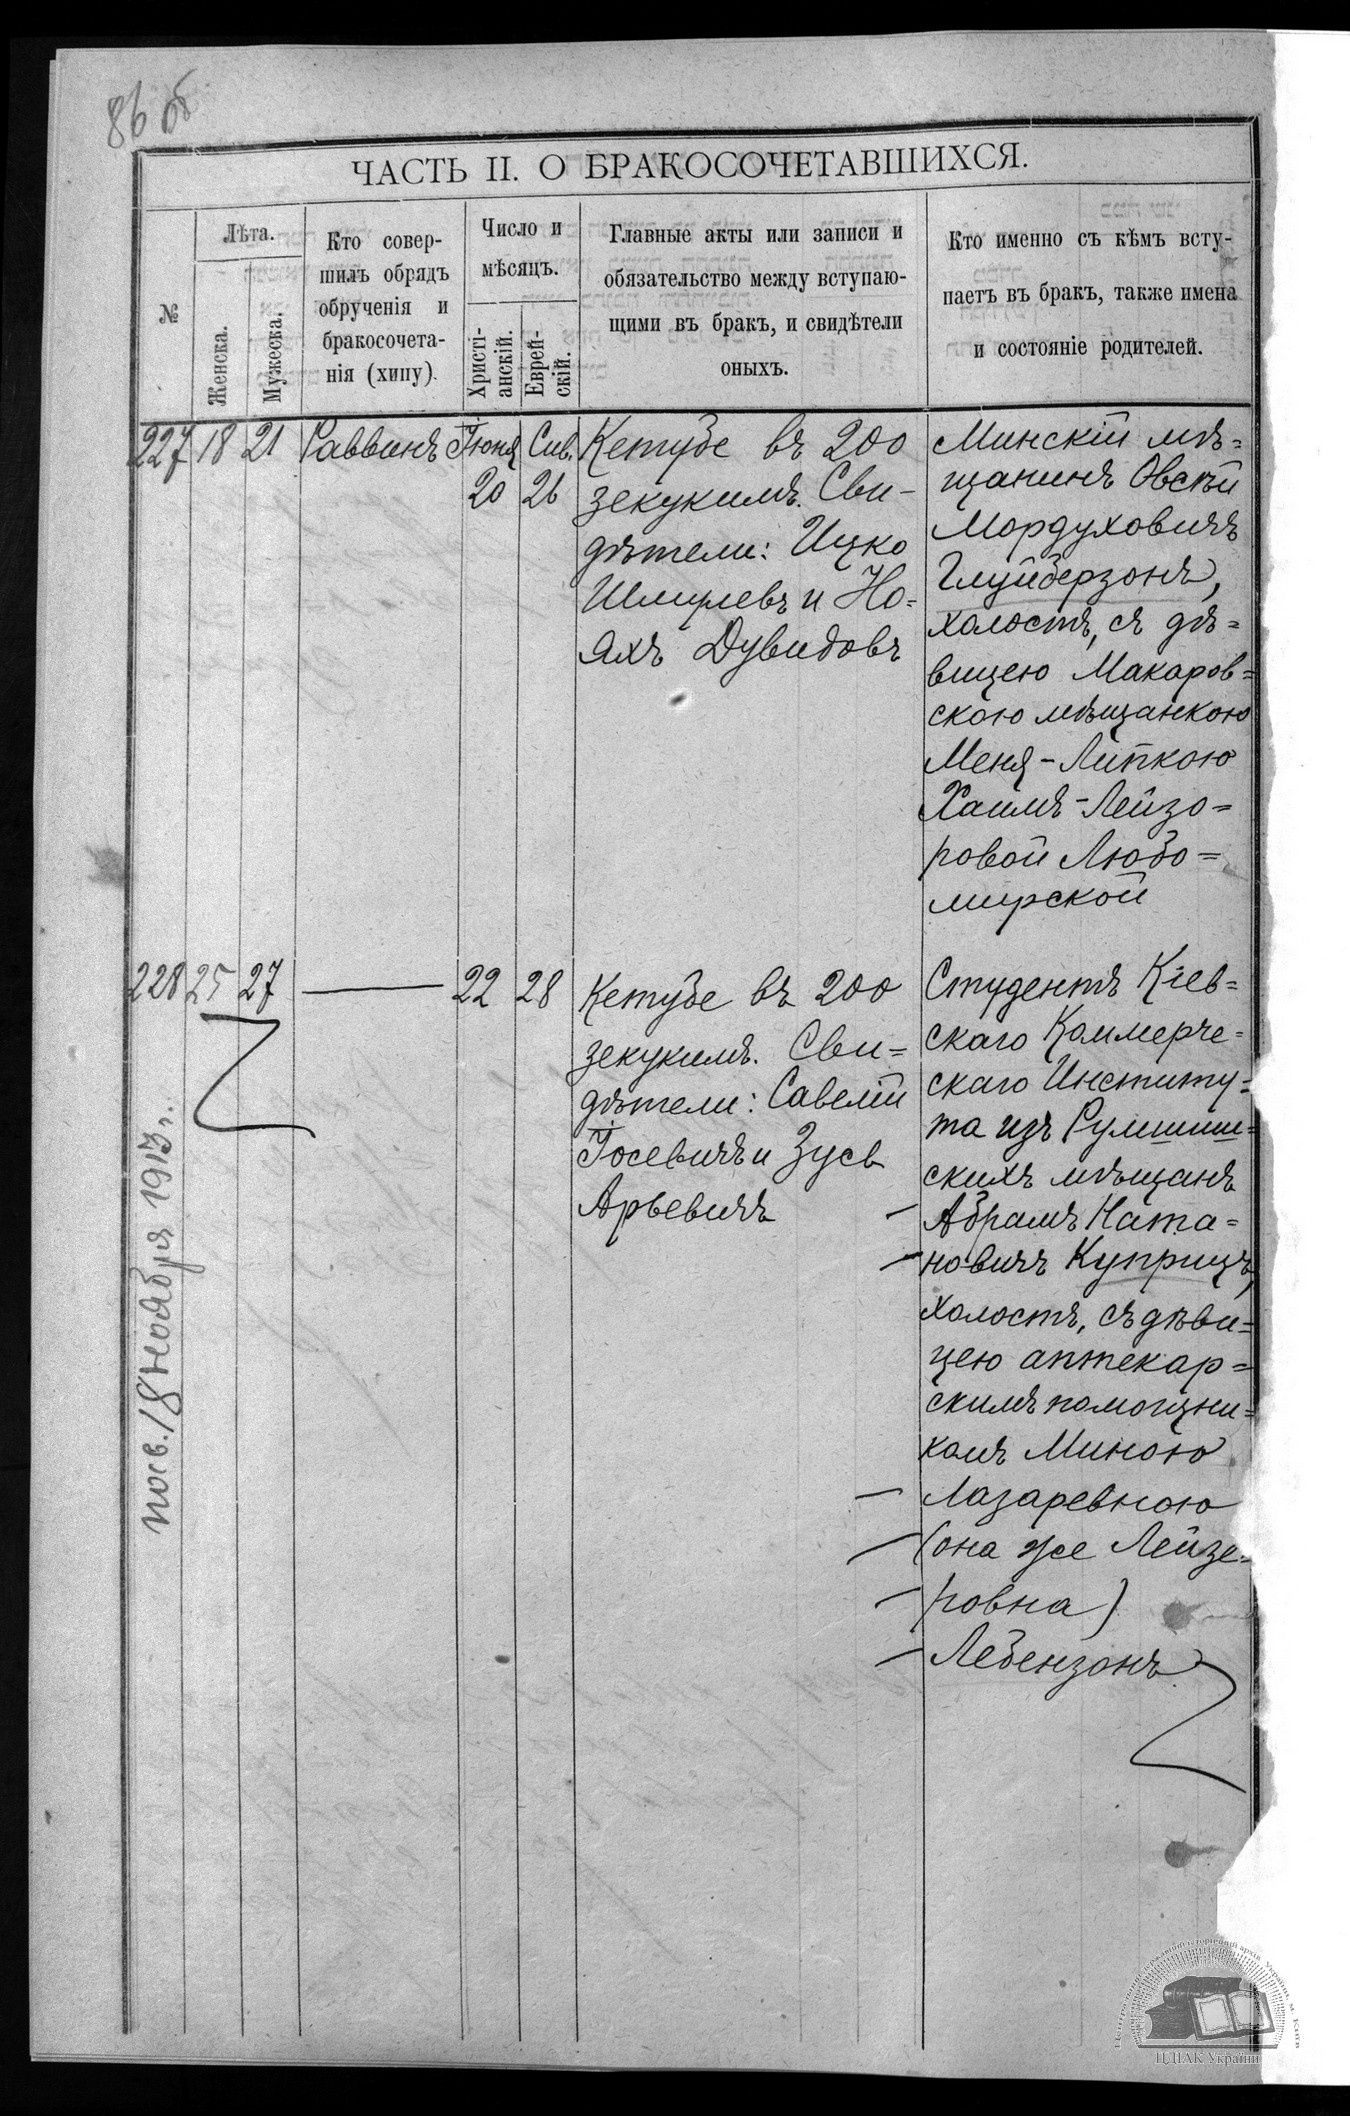 86 об
ЧАСТЬ II. О БРАКОСОЧЕТАВШИХСЯ.
№
Лѣта.
Женска.
Мужеска.
Кто совер-
шилъ обрядъ
обрученія и
бракосочета-
нія (хипу).
Число и
мѣсяцъ.
Христі-
анскій.
Еврей-
скій.
Главные акты или записи и
обязательство между вступаю-
щими въ бракъ, и свидѣтели
оныхъ.
Кто именно съ кѣмъ всту-
паетъ въ бракъ, также имена
и состояніе родителей.
227 18 21 Раввинъ Іюня 20 Сив. 26
Кетубе въ 200
зекукимъ. Сви-
дѣтели: Ицко
Шмулевъ и Но-
яхъ Дувидовъ
Минскій мѣ-
щанинъ Овсѣй
Мордуховичъ
Глуйберзонъ,
холостъ, съ дѣ-
вицею Макаров-
скою мѣщанкою
Меня-Липкою
Хаимъ-Лейзо-
ровой Любо-
мирской
228 25 27 — 22 28
Кетубе въ 200
зекукимъ. Сви-
дѣтели: Савелій
Іосевичъ и Зусь
Арьевичъ
Студентъ Кіев-
скаго Коммерче-
скаго Институ-
та изъ Румшиш-
скихъ мѣщанъ
Абрамъ Ната-
новичъ Куприцъ,
холостъ, съ дѣви-
цею аптекар-
скимъ помощни-
комъ Миною
Лазаревною
(она же Лейзе-
ровна)
Лебензонъ
посв. 18 ноября 1913 г.
Центральний державний історичний архів України, м. Київ
ЦДІАК України